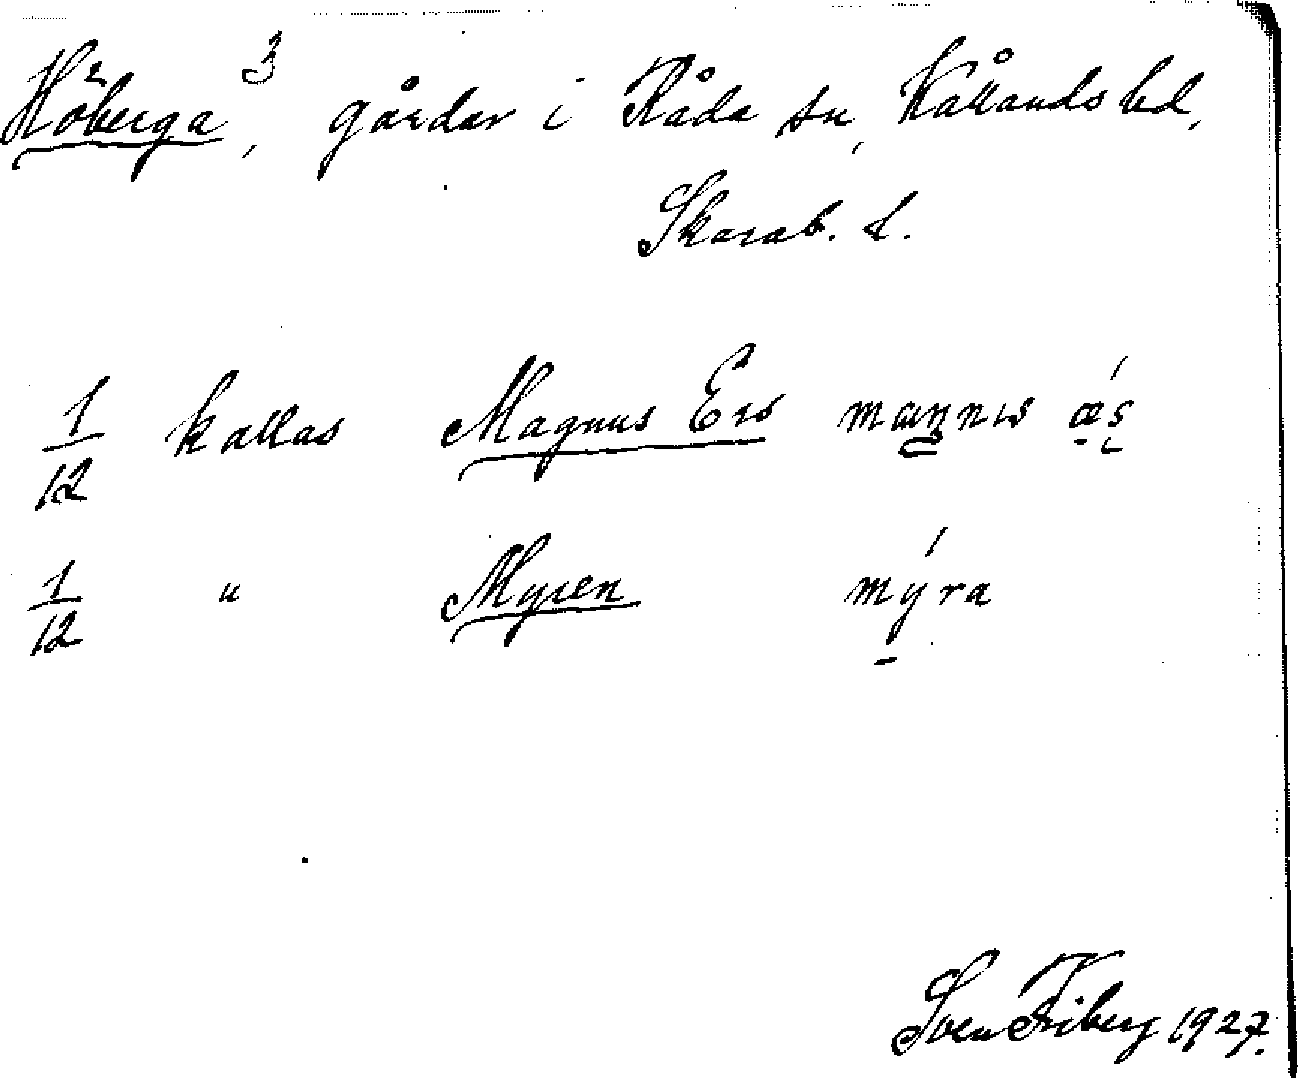 Höberga 3, gårdar i Råda sn, Kållands hd,
Skarab. l.
1/12 kallas Magnus Ers mannus ǽ̱s
1/12 " Myren mýra
Sven Friberg 1927.